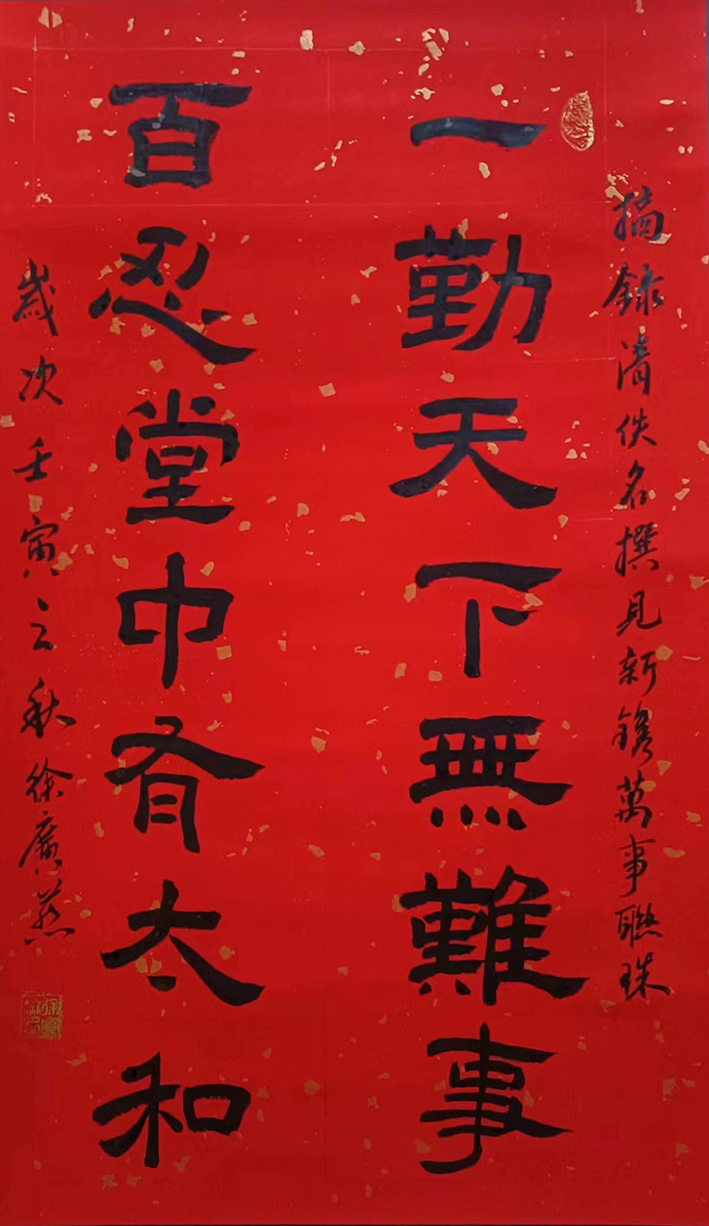 摘録清佚名撰見新鐫萬事聯珠
一勤天下無難事
百忍堂中有太和
歲次壬寅之秋徐廣